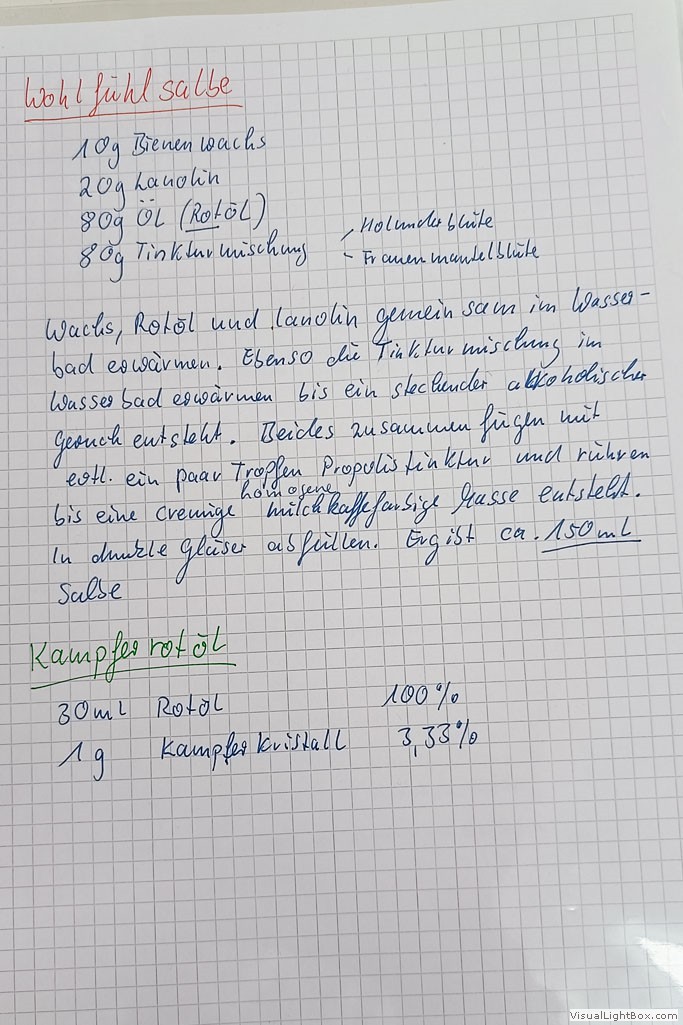 Wohlfühlsalbe
10g Bienenwachs
20g Lanolin
80g Öl (Rotöl)
80g Tinkturmischung
Holunderblüte
- Frauenmantelblüte
Wachs, Rotöl und Lanolin gemeinsam im Wasser-
bad erwärmen. Ebenso die Tinkturmischung im
Wasserbad erwärmen bis ein stechender alkoholischer
Geruch entsteht. Beides zusammenfügen mit
evtl. ein paar Tropfen Propolistinktur und rühren
homogene
bis eine cremige milchkaffefarbige Masse entsteht.
In dunkle Gläser abfüllen. Ergibt ca. 150ml
Salbe
Kampferrotöl
30ml Rotöl 100%
1g Kampferkristall 3,33%
VisualLightBox.com